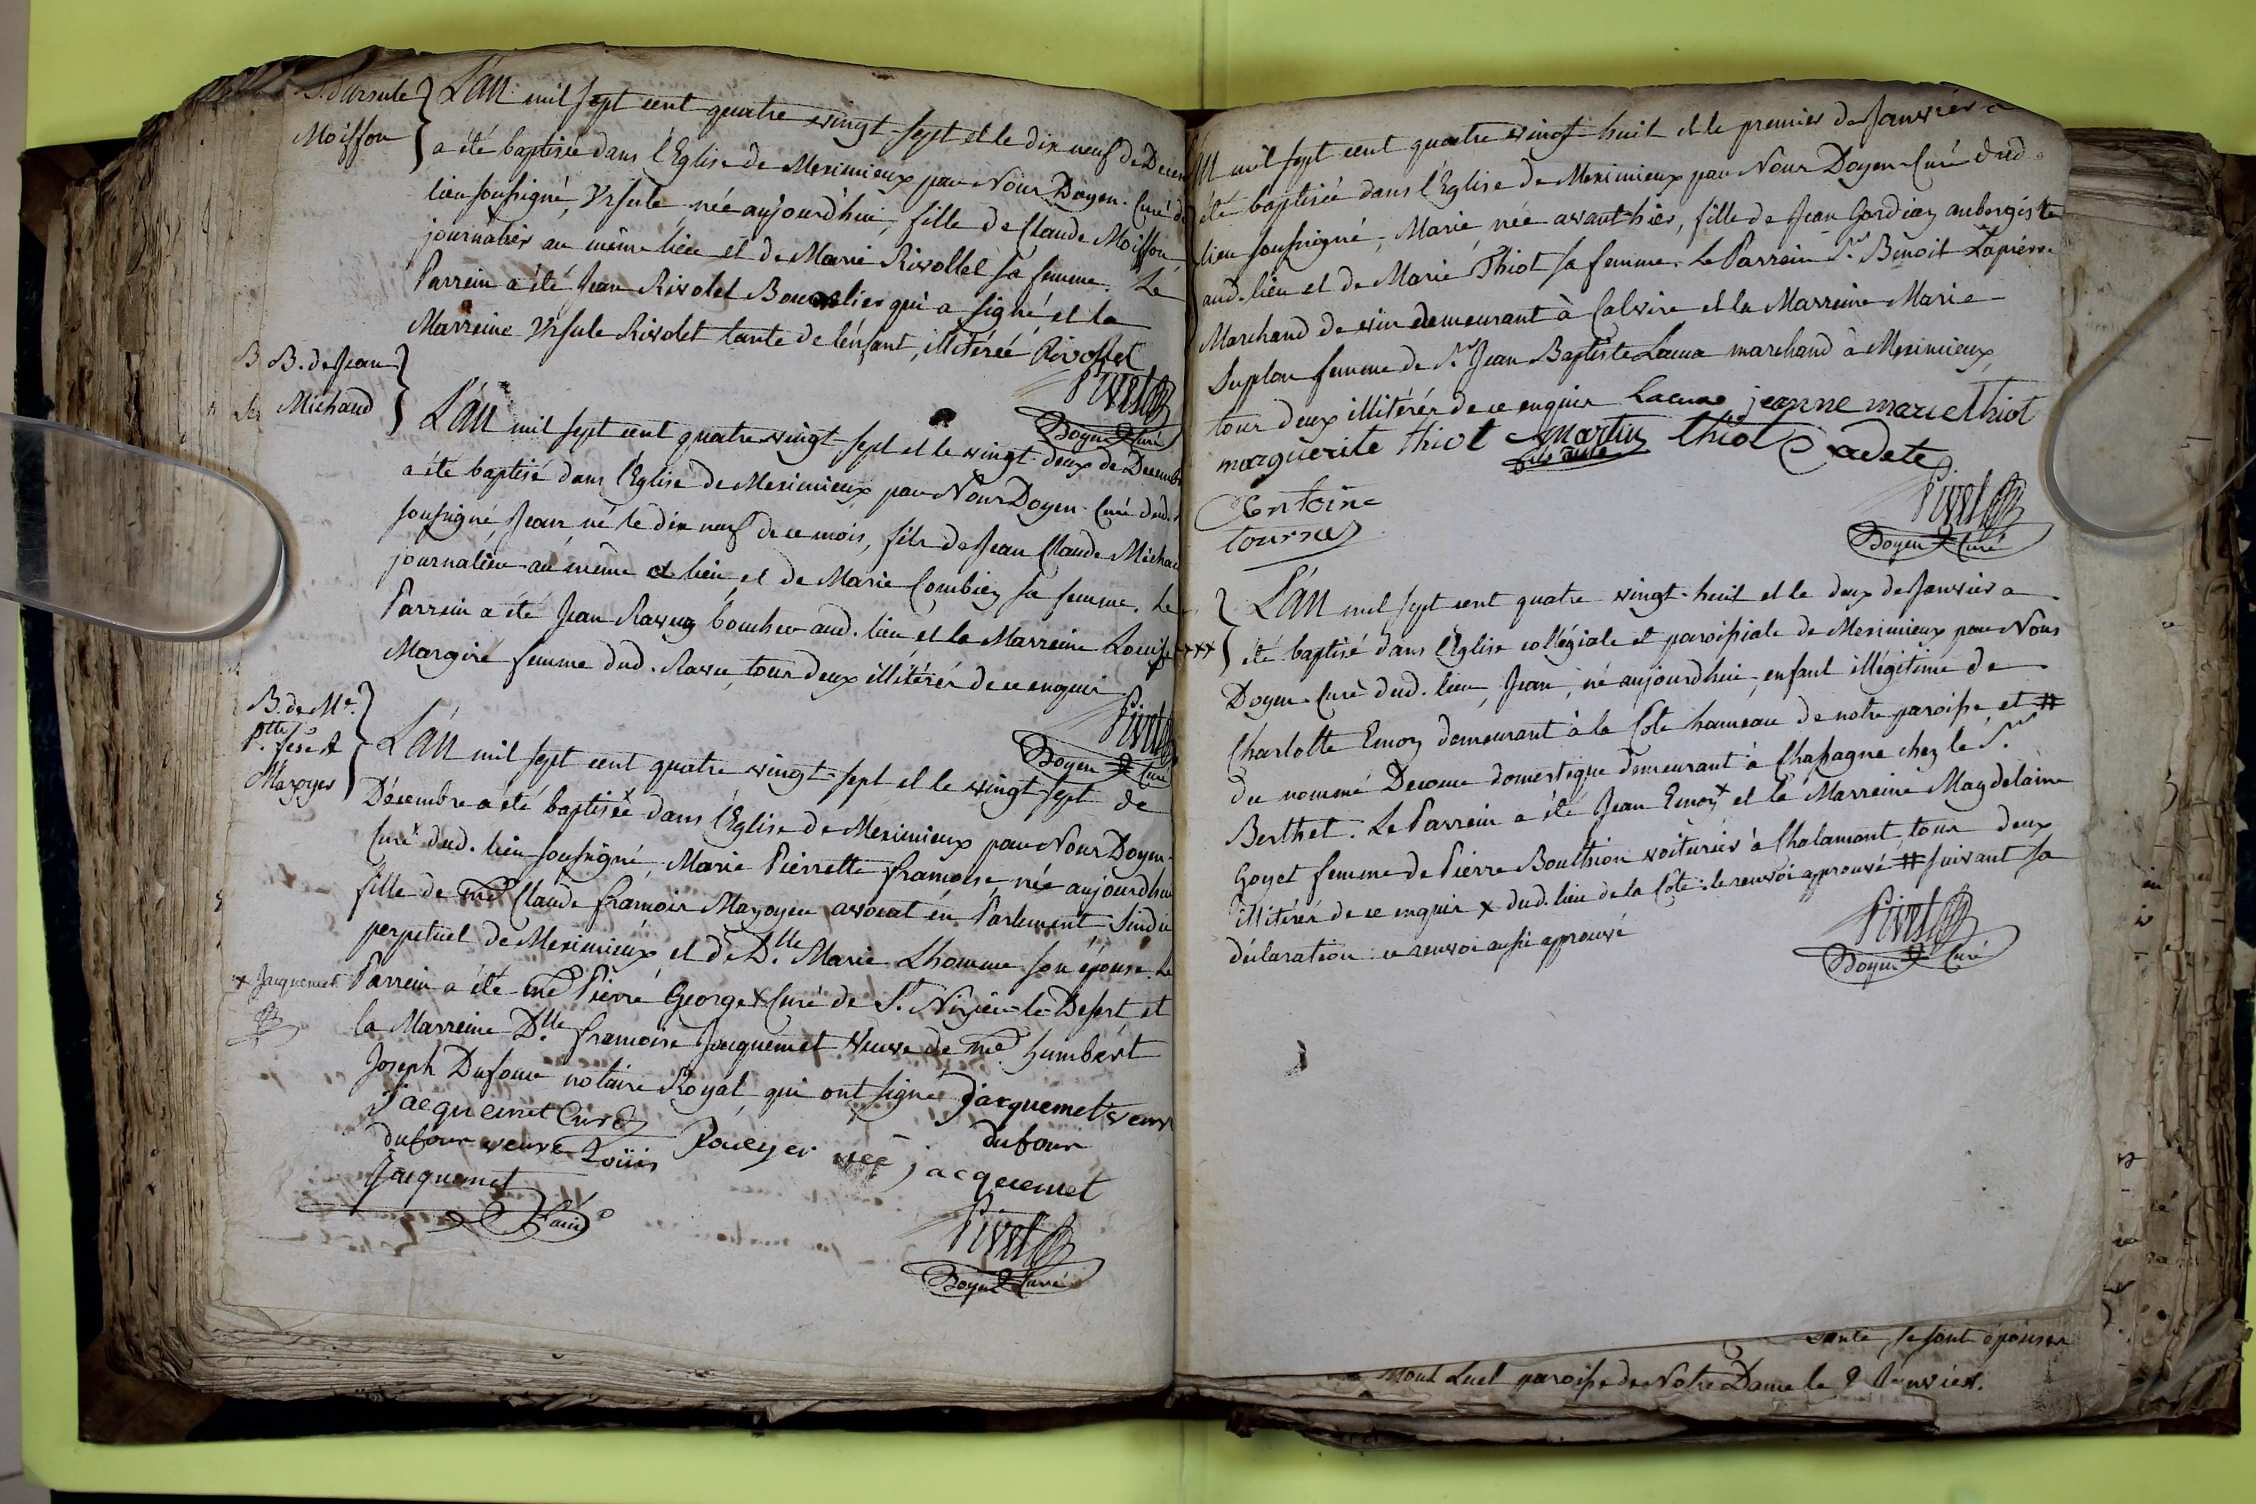 B. d'Ursule
Moisson
L'an mil sept cent quatre vingt-sept et le dix neuf de Decem
a été baptisée dans l'Eglise de Meximieux par Nous Doyen-Curé du
lieu soussigné, Ursule, née aujourd'hui, fille de Claude Moisson
journalier au même lieu et de Marie Rivollet sa femme. Le
Parrein a été Jean Rivolet Bourrelier qui a signé et la
Marreine Ursule Rivolet tante de l'enfant, illitérée Rivollet
Pivet
Doyen Curé
B. de Jean
Michaud
L'an mil sept cent quatre vingt-sept et le vingt-deux de Décemb
a été baptisé dans l'Eglise de Meximieux par Nous Doyen-Curé dud.
soussigné, Jean né le dix neuf de ce mois, fils de Jean Claude Michau
journalier au même lieu et de Marie Combier sa femme. Le
Parrein a été Jean Ravuz boucher aud. lieu et la Marreine Louise
Margire femme dud. Ravu, tous deux illitérés de ce enquis
Pivet
Doyen Curé
B. de Me.
Ptte. fse.
Mayoyer
L'an mil sept cent quatre vingt-sept et le vingt-sept de
Décembre a été baptisée dans l'Eglise de Meximieux par Nous Doyen-
Curé dud. lieu soussigné, Marie Pierrette françoise née aujourd'hui
fille de me Claude françois Mayoyer avocat en Parlement Sindic
perpetuel de Meximieux et de Dlle. Marie Lhomme son épouse. Le
x Jacquemet
Parrein a été me Pierre George x Curé de St. Nizier-le-Desert et
la Marreine Dlle. françoise Jacquemet Veuve de me humbert
Joseph Dufour notaire Royal, qui ont signé Jacquemet veuve
Jacquemet Curé dufour
dufour veuve Louis Roueyer née jacquemet
Jacquemet
Pivet
Doyen Curé
mil sept cent quatre vingt-huit et le premier de Janvier a
été baptisée dans l'Eglise de Meximieux par Nous Doyen-Curé dud.
lieu soussigné, Marie née avant-hier, fille de Jean Gardien aubergiste
aud. lieu et de Marie Thiot sa femme. Le Parrein Sr. Benoit Lapierre
Marchand de vin demeurant à Calvire et la Marreine Marie
Suplon femme de Sr. Jean Baptiste Lacua marchand à Meximieux,
tous deux illitérés de ce enquis Lacua jeanne marie thiot
marguerite thiot Martin thiot Cadete
Antoine
tournes
Pivet
Doyen Curé
L'an mil sept cent quatre-vingt-huit et le deux de Janvier a
xxx
été baptisé dans l'Eglise collégiale et paroissiale de Meximieux par Nous
Doyen-Curé dud. lieu, Jean, né aujourd'hui, enfant illégitime de
Charlotte Emoz demeurant à la Cote hameau de notre paroisse et #
du nommé Decome domestique demeurant à Chassagne chez le Sr.
Berthet. Le Parrein a été Jean Emoz x et la Marreine Magdelaine
Goyet femme de Pierre Bouthion voiturier à Chalamont, tous deux
illitérés de ce enquis x dud. lieu de la Côte: le renvoi approuvé # suivant sa
déclaration: ce renvoi aussi approuvé
Pivet
Doyen Curé
se sont épousés
Mont Luel paroisse de Notre Dame le 8 Janvier.